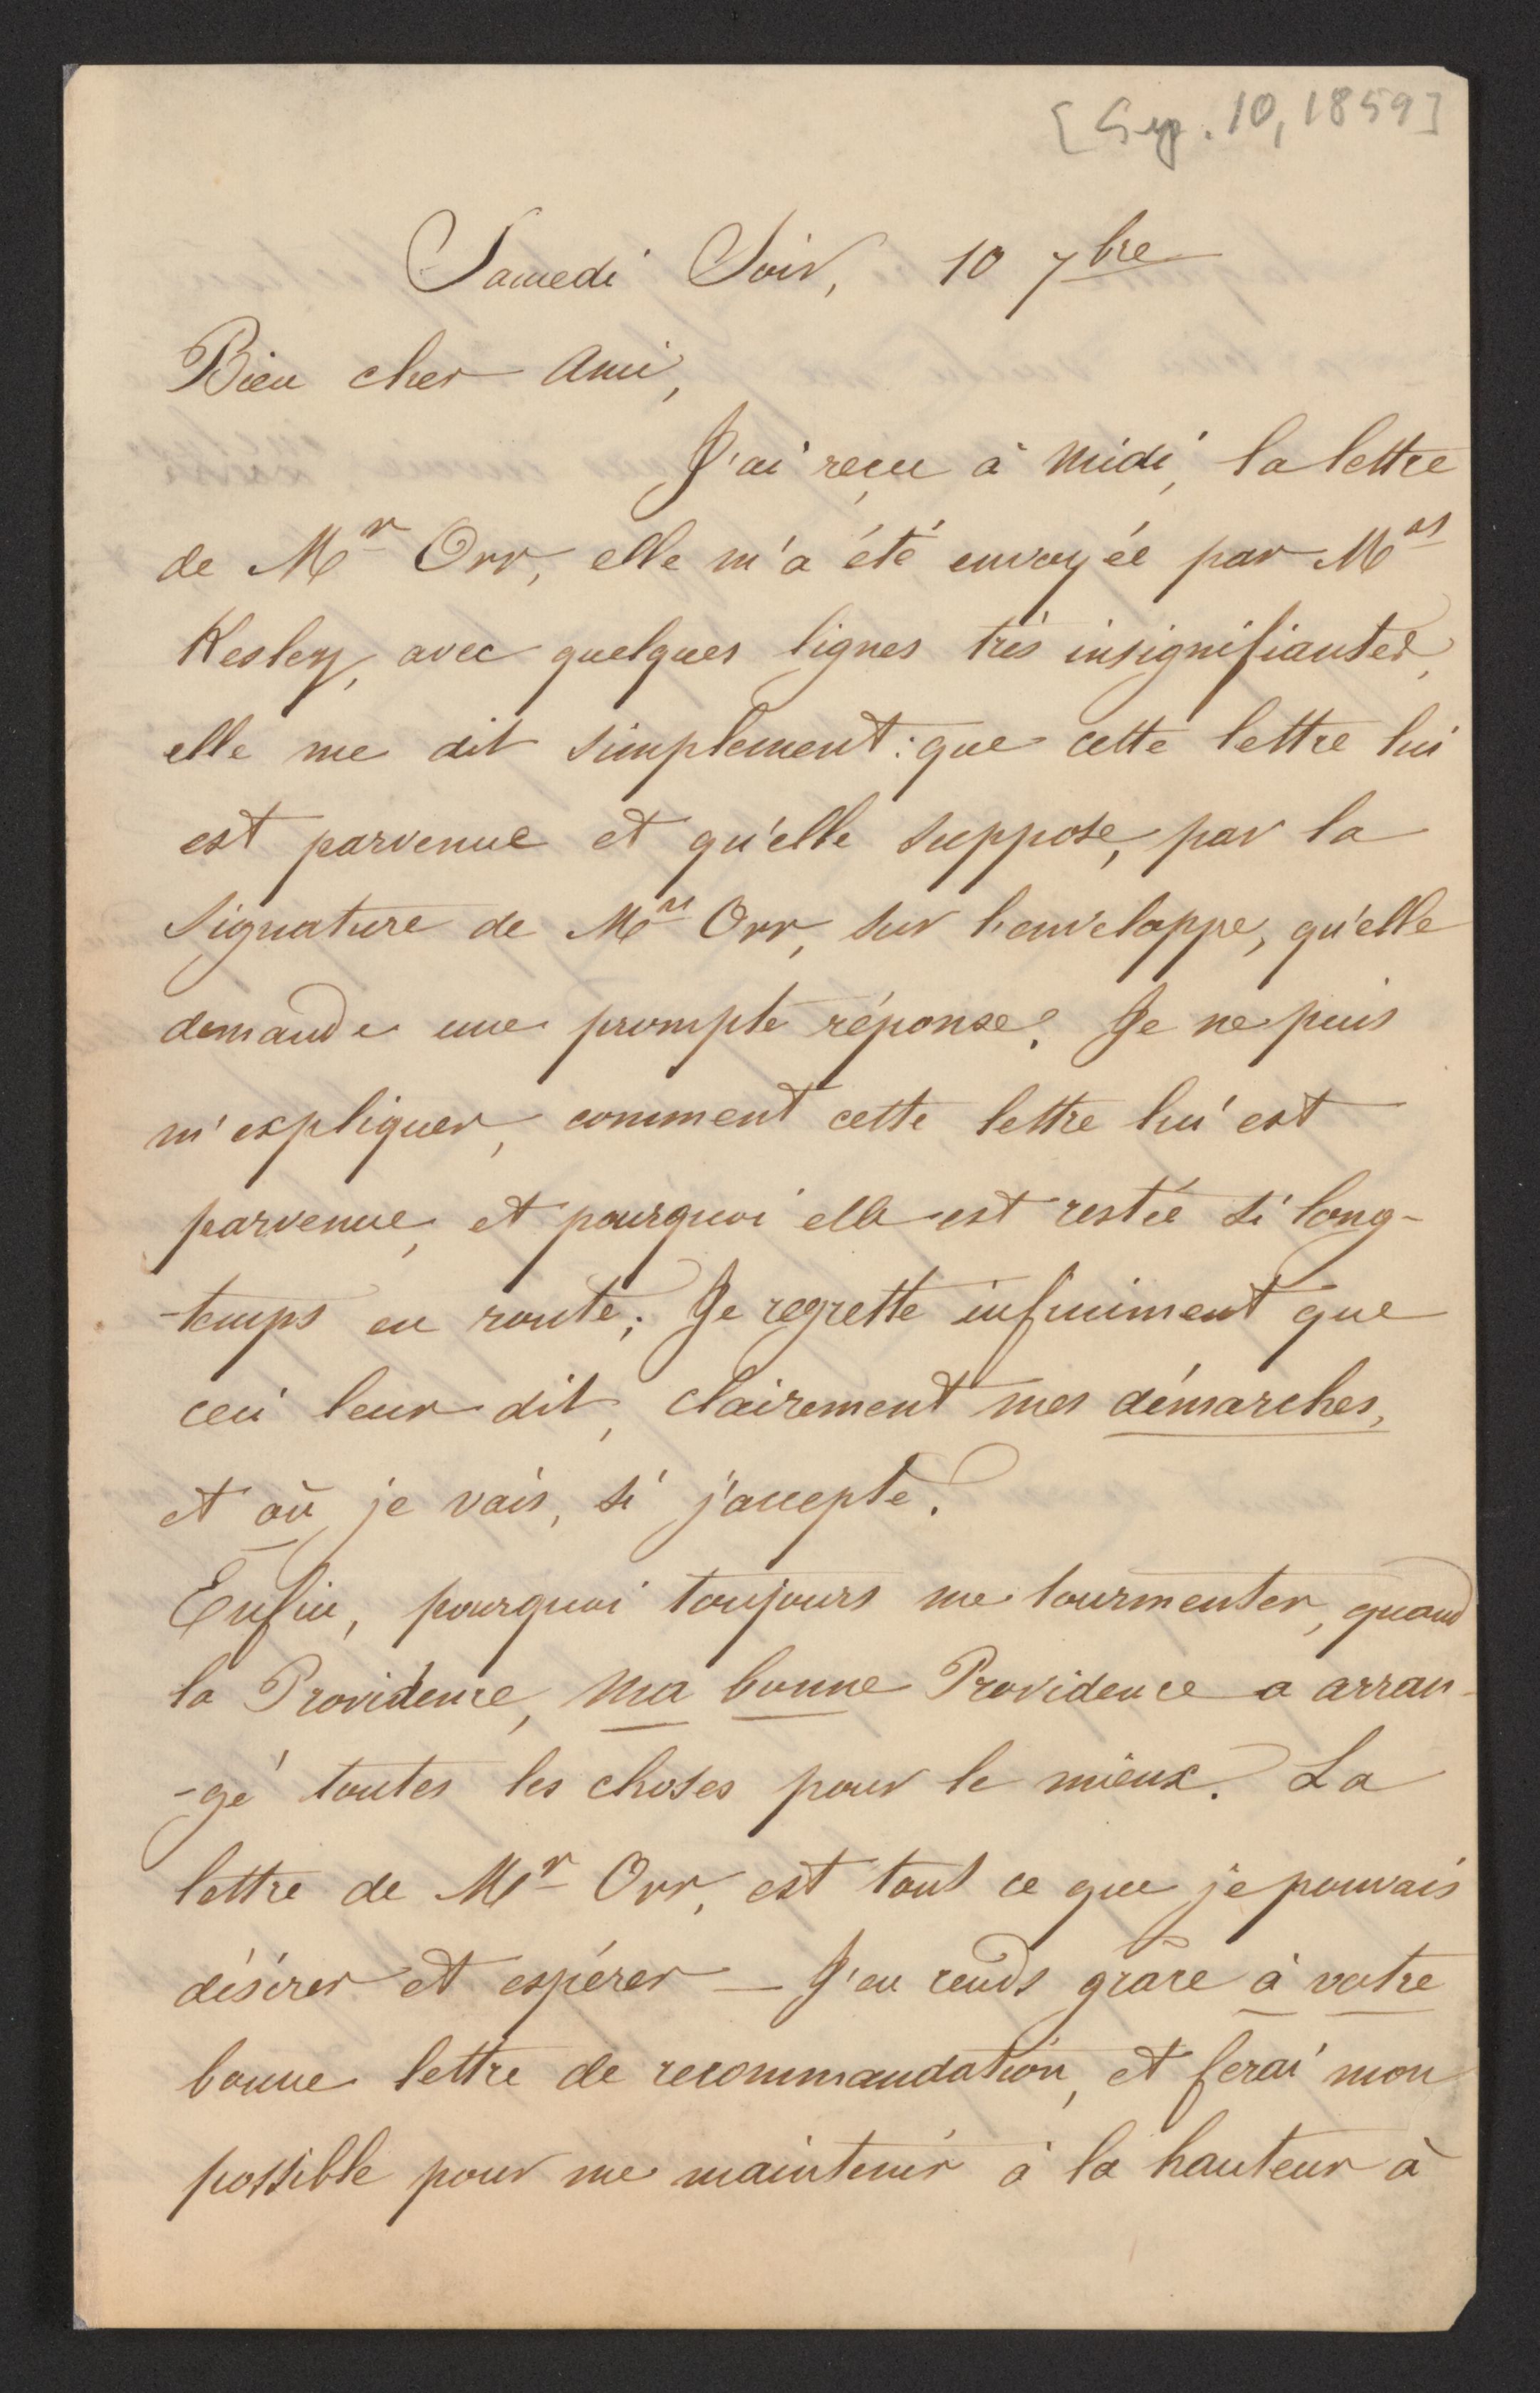 [Sep. 10, 1859]
Samedi Soir, 10 7bre
Bien cher Ami,
J'ai reçu à midi, la lettre
de Mr Orr, elle m'a été envoyée par Mrs
Kesley, avec quelques lignes très insignifiantes,
elle me dit simplement: que cette lettre lui
est parvenue et qu'elle suppose, par la
signature de Mrs Orr, sur l'enveloppe, qu'elle
demande une prompte réponse. Je ne puis
m'expliquer, comment cette lettre lui est
parvenue, et pourquoi elle est restée si long-
-temps en route; Je regrette infiniment que
ceci leur dit, clairement mes démarches,
et où je vais, si j'accepte.
Enfin, pourquoi toujours me tourmenter, quand
la Providence, ma bonne Providence a arran-
-gé toutes les choses pour le mieux. La
lettre de Mr Orr, est tout ce que je pouvais
désirer et espérer — J'en rends grâce à votre
bonne lettre de recommandation, et ferai mon
possible pour me maintenir à la hauteur à